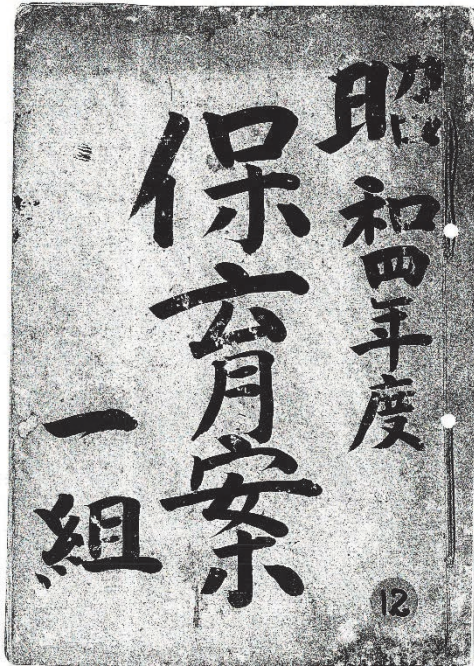 昭和四年度
保育案
一組
12